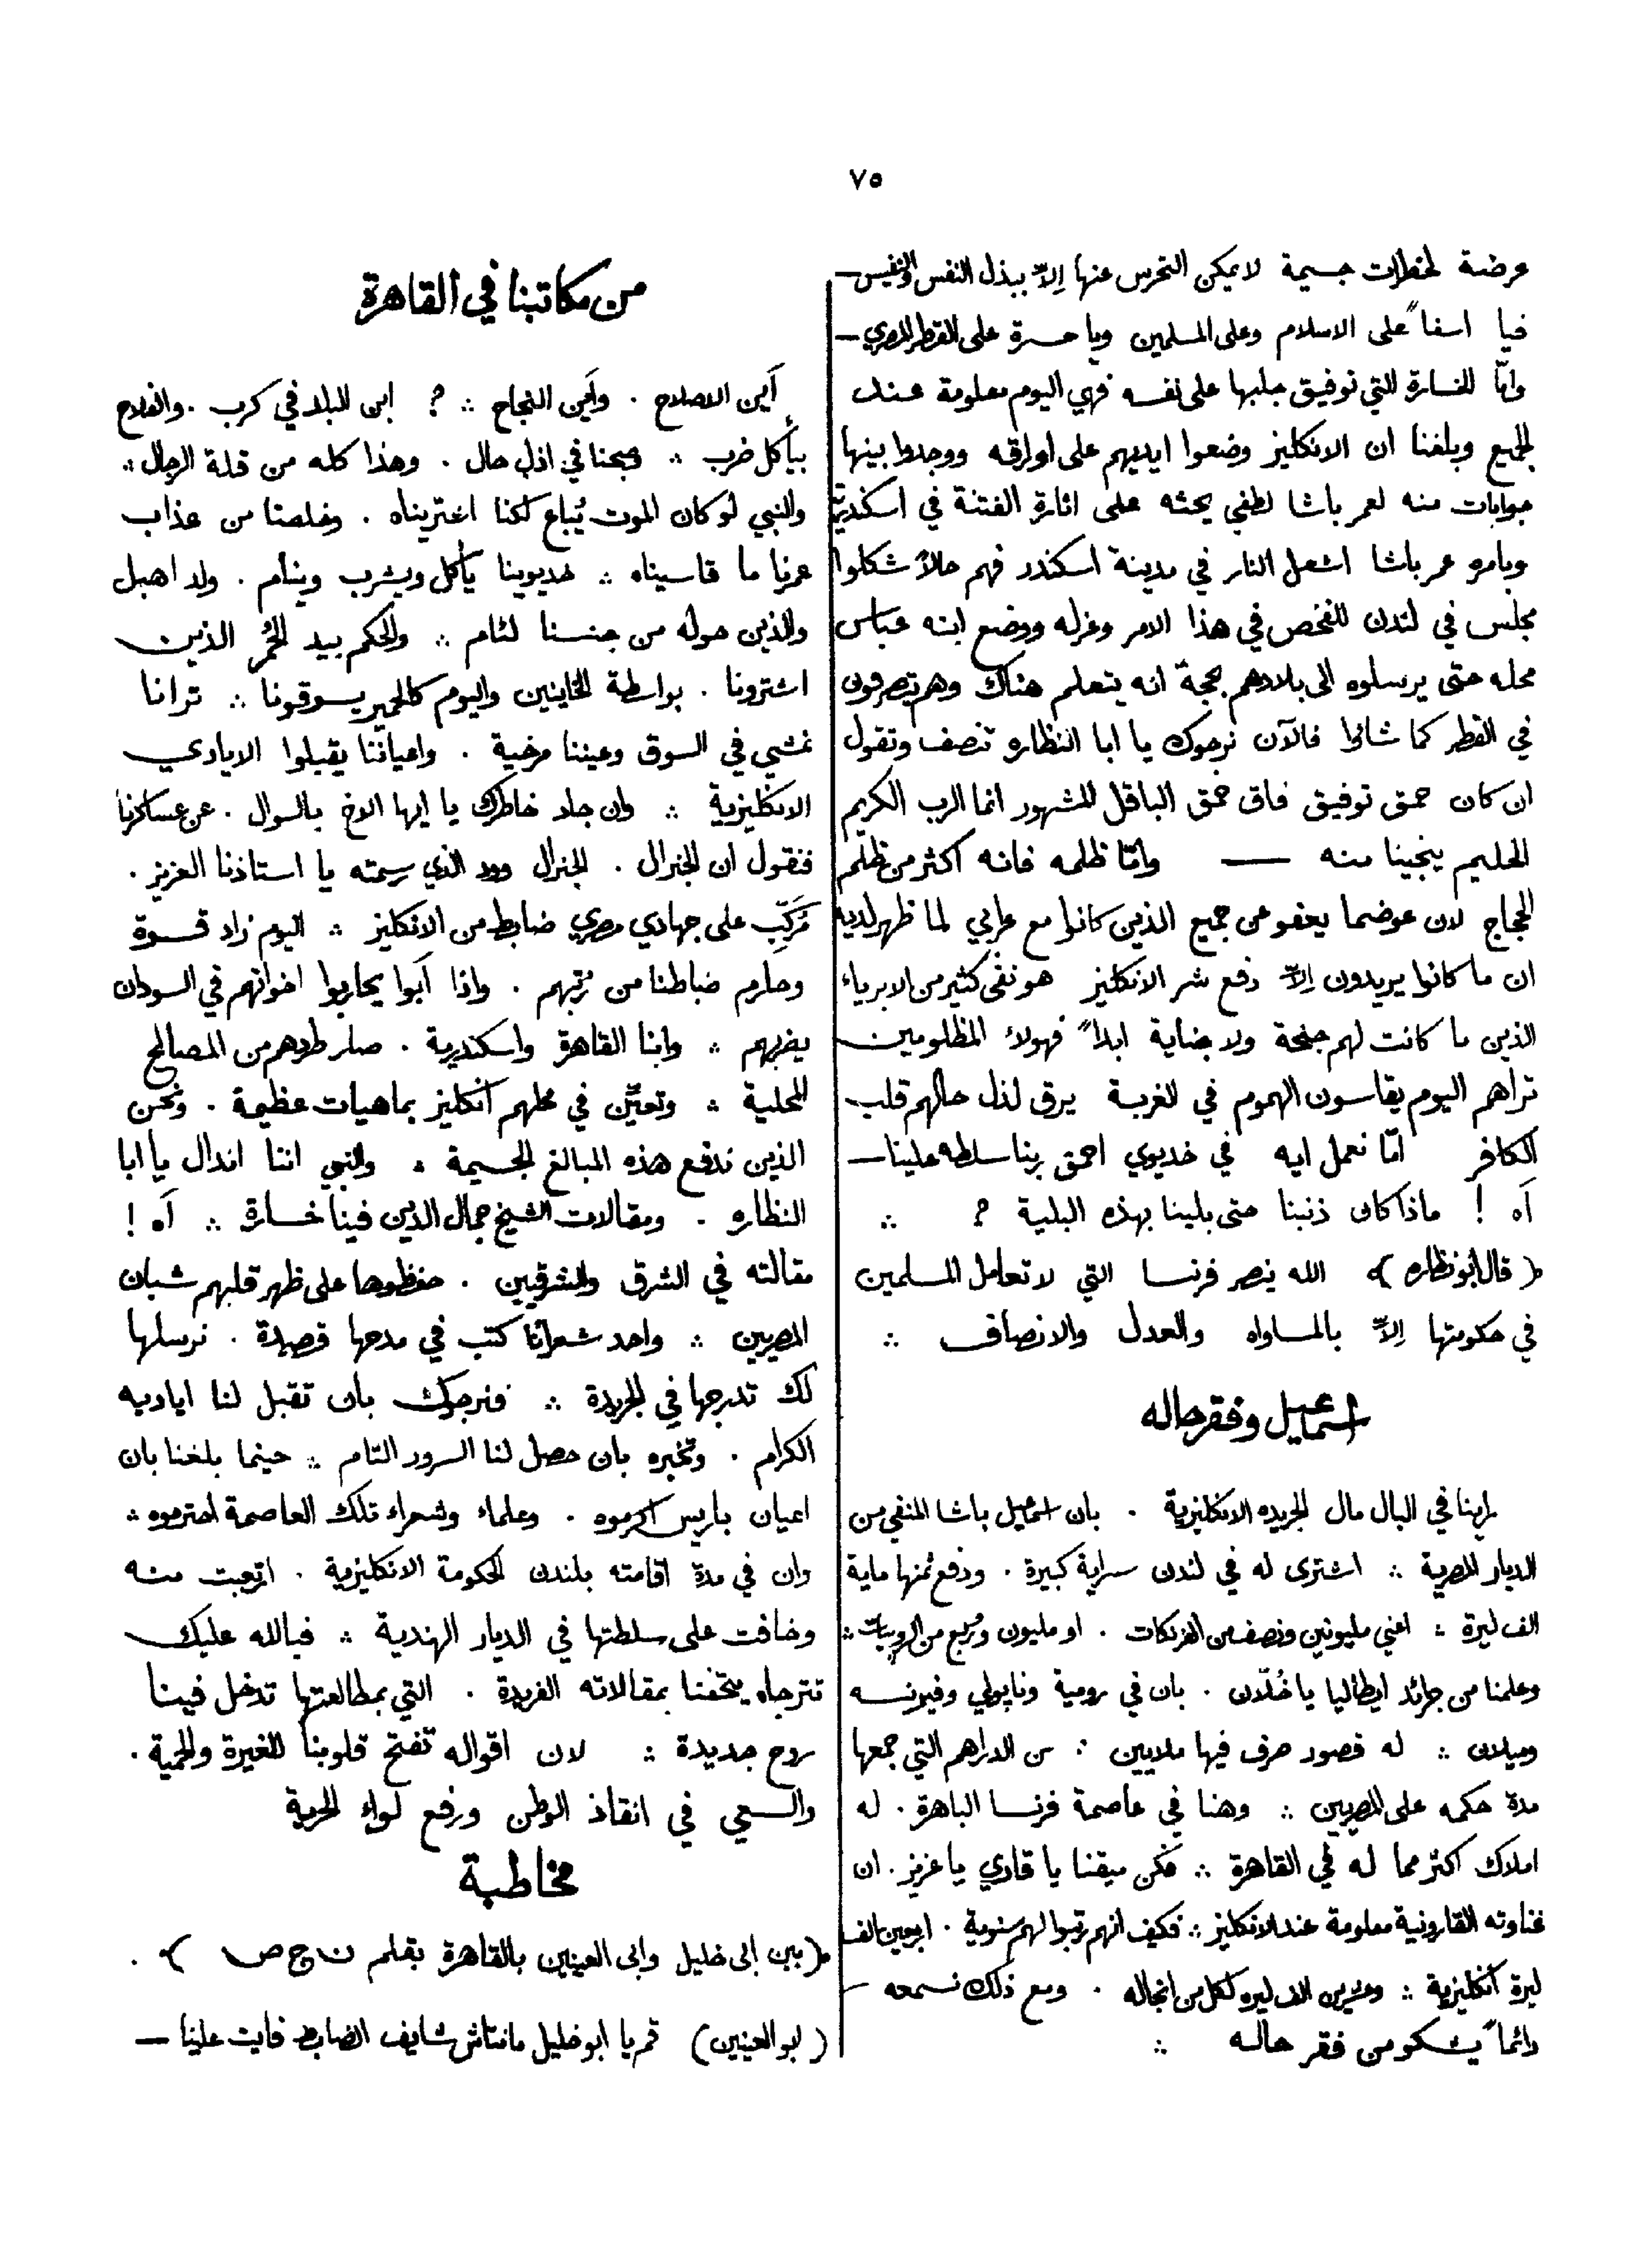 ٧٥
عرضة لخطرات جسيمة لا يمكن التحرس عنها إلاّ ببذل النفس والنفيس —
فيا اسفاً على الاسلام وعلى المسلمين ويا حسرة على القطر المصري —
وامّا الخسارة التي توفيق جلبها على نفسه فهي اليوم معلومة عند
الجميع وبلغنا ان الانكليز وضعوا ايديهم على اوراقه ووجدوا بينها
جوابات منه لعمر باشا لطفي يحثه على اثارة الفتنة في اسكندرية
وبامره عمر باشا اشعل النار في مدينة اسكندر فهم حالاً شكلوا
مجلس في لندن للفحص في هذا الامر وعزله ووضع ابنه عباس
محله حتى يرسلوه الى بلادهم بحجة انه يتعلم هناك وهم يتصرفون
في القطر كما شاؤا فالآن نرجوك يا ابا النظاره تنصف وتقول
ان كان حمق توفيق فاق حمق الباقل المشهور انما الرب الكريم
الحليم ينجينا منه — وامّا ظلمه فانه اكثر من ظلم
الحجاج لان عوضما يعفو عن جميع الذين كانوا مع عرابي لما ظهر لديه
ان ما كانوا يريدون إلاّ دفع شر الانكليز هو نفى كثير من الابرياء
الذين ما كانت لهم جنحة ولا جناية ابداً فهولاء المظلومين
تراهم اليوم يقاسون الهموم في الغربة يرق لذل حالهم قلب
الكافر امّا نعمل ايه في خديوي احمق ربنا سلطه علينا —
آه ! ماذا كان ذنبنا حتى بلينا بهذه البلية ؟ ∴
﴿ قال ابو نظاره ﴾ الله ينصر فرنسا التي لا تعامل المسلمين
في حكومتها إلاّ بالمساواه والعدل والانصاف ∴
اسماعيل وفقر حاله
راينا في البال مال الجريده الانكليزية . بان اسماعيل باشا المنفي من
الديار المصرية ∴ اشترى له في لندن سراية كبيرة . ودفع ثمنها ماية
الف ليرة ∴ اعني مليونين ونصف من الفرنكات . او مليون وربع من الروبيات ∴
وعلمنا من جرائد ايطاليا يا خلّان . بان في رومية ونابولي وفيرنسه
وميلان ∴ له قصور صرف فيها ملايين ∴ من الدراهم التي جمعها
مدة حكمه على المصريين ∴ وهنا في عاصمة فرنسا الباهرة . له
املاك اكثر مما له في القاهرة ∴ فكن ميقنا يا قاري يا عزيز . ان
غناوته القارونية معلومة عند الانكليز ∴ فكيف انهم رتبوا لهم سنوية . اربعين الف
ليرة انكليزية ∴ وعشرين الف ليره لكل من انجاله . ومع ذلك نسمعه —
دائماً يشكو من فقر حاله ∴
من مكاتبنا في القاهرة
أين الاصلاح . وأين النجاح ∴ ؟ ابن البلد في كرب . والفلاح
بيأكل ضرب ∴ وصبحنا في اذل حال . وهذا كله من قلة الرجال ∴
والنبي لو كان الموت يُباع لكنا اشتريناه . وخلصنا من عذاب
عمرنا ما قاسيناه ∴ خديوينا يأكل ويشرب وينام . ولد اهبل
والذين حوله من جنسنا لئام ∴ والحكم بيد الحُمر الذين
اشترونا . بواسطة الخاينين واليوم كالحمير يسوقونا ∴ ترانا
نمشي في السوق وعيننا مرخية . واعياننا يقبلوا الايادي
الانكليزية ∴ وان جاد خاطرك يا ايها الاخ بالسوال . عن عساكرنا
فنقول ان الجنرال . الجنرال وود الذي رسمته يا استاذنا العزيز .
مَركّب على جهادي مصري ضابط من الانكليز ∴ اليوم زاد قسوة
وحارم ضباطنا من رتبهم . واذا أبوا يحاربوا اخوانهم في السودان
يضربهم ∴ وابنا القاهرة واسكندرية . صار طردهم من المصالح
المحلية ∴ وتعيّن في محلهم انكليز بماهيات عظيمة . ونحن
الذين ندفع هذه المبالغ الجسيمة ∴ والنبي اننا اندال يا ابا
النظاره . ومقالات الشيخ جمال الدين فينا خسارة ∴ آه !
مقالته في الشرق والشرقيين . حفظوها على ظهر قلبهم شبان
المصريين ∴ واحد شعرانا كتب في مدحها قصيدة . نرسلها
لك تدرجها في الجريدة ∴ ونرجوك بان تقبل لنا اياديه
الكرام . وتخبره بان حصل لنا السرور التام ∴ حينما بلغنا بان
اعيان باريس اكرموه . وعلماء وشعراء تلك العاصمة احترموه ∴
وان في مدة اقامته بلندن الحكومة الانكليزية . اترعبت منه
وخافت على سلطتها في الديار الهندية ∴ فبالله عليك
تترجاه يتحفنا بمقالاته الفريدة . التي بمطالعتها تدخل فينا
روح جديدة ∴ لان اقواله تفتح قلوبنا للغيرة والحمية .
والسعي في انقاذ الوطن ورفع لواء الحرية
مخاطبة
﴿ بين ابى خليل وابى العينين بالقاهرة بقلم ن ج ص ﴾ .
( ابو العينين ) قم يا ابو خليل مانتاش شايف الضابط فايت علينا —